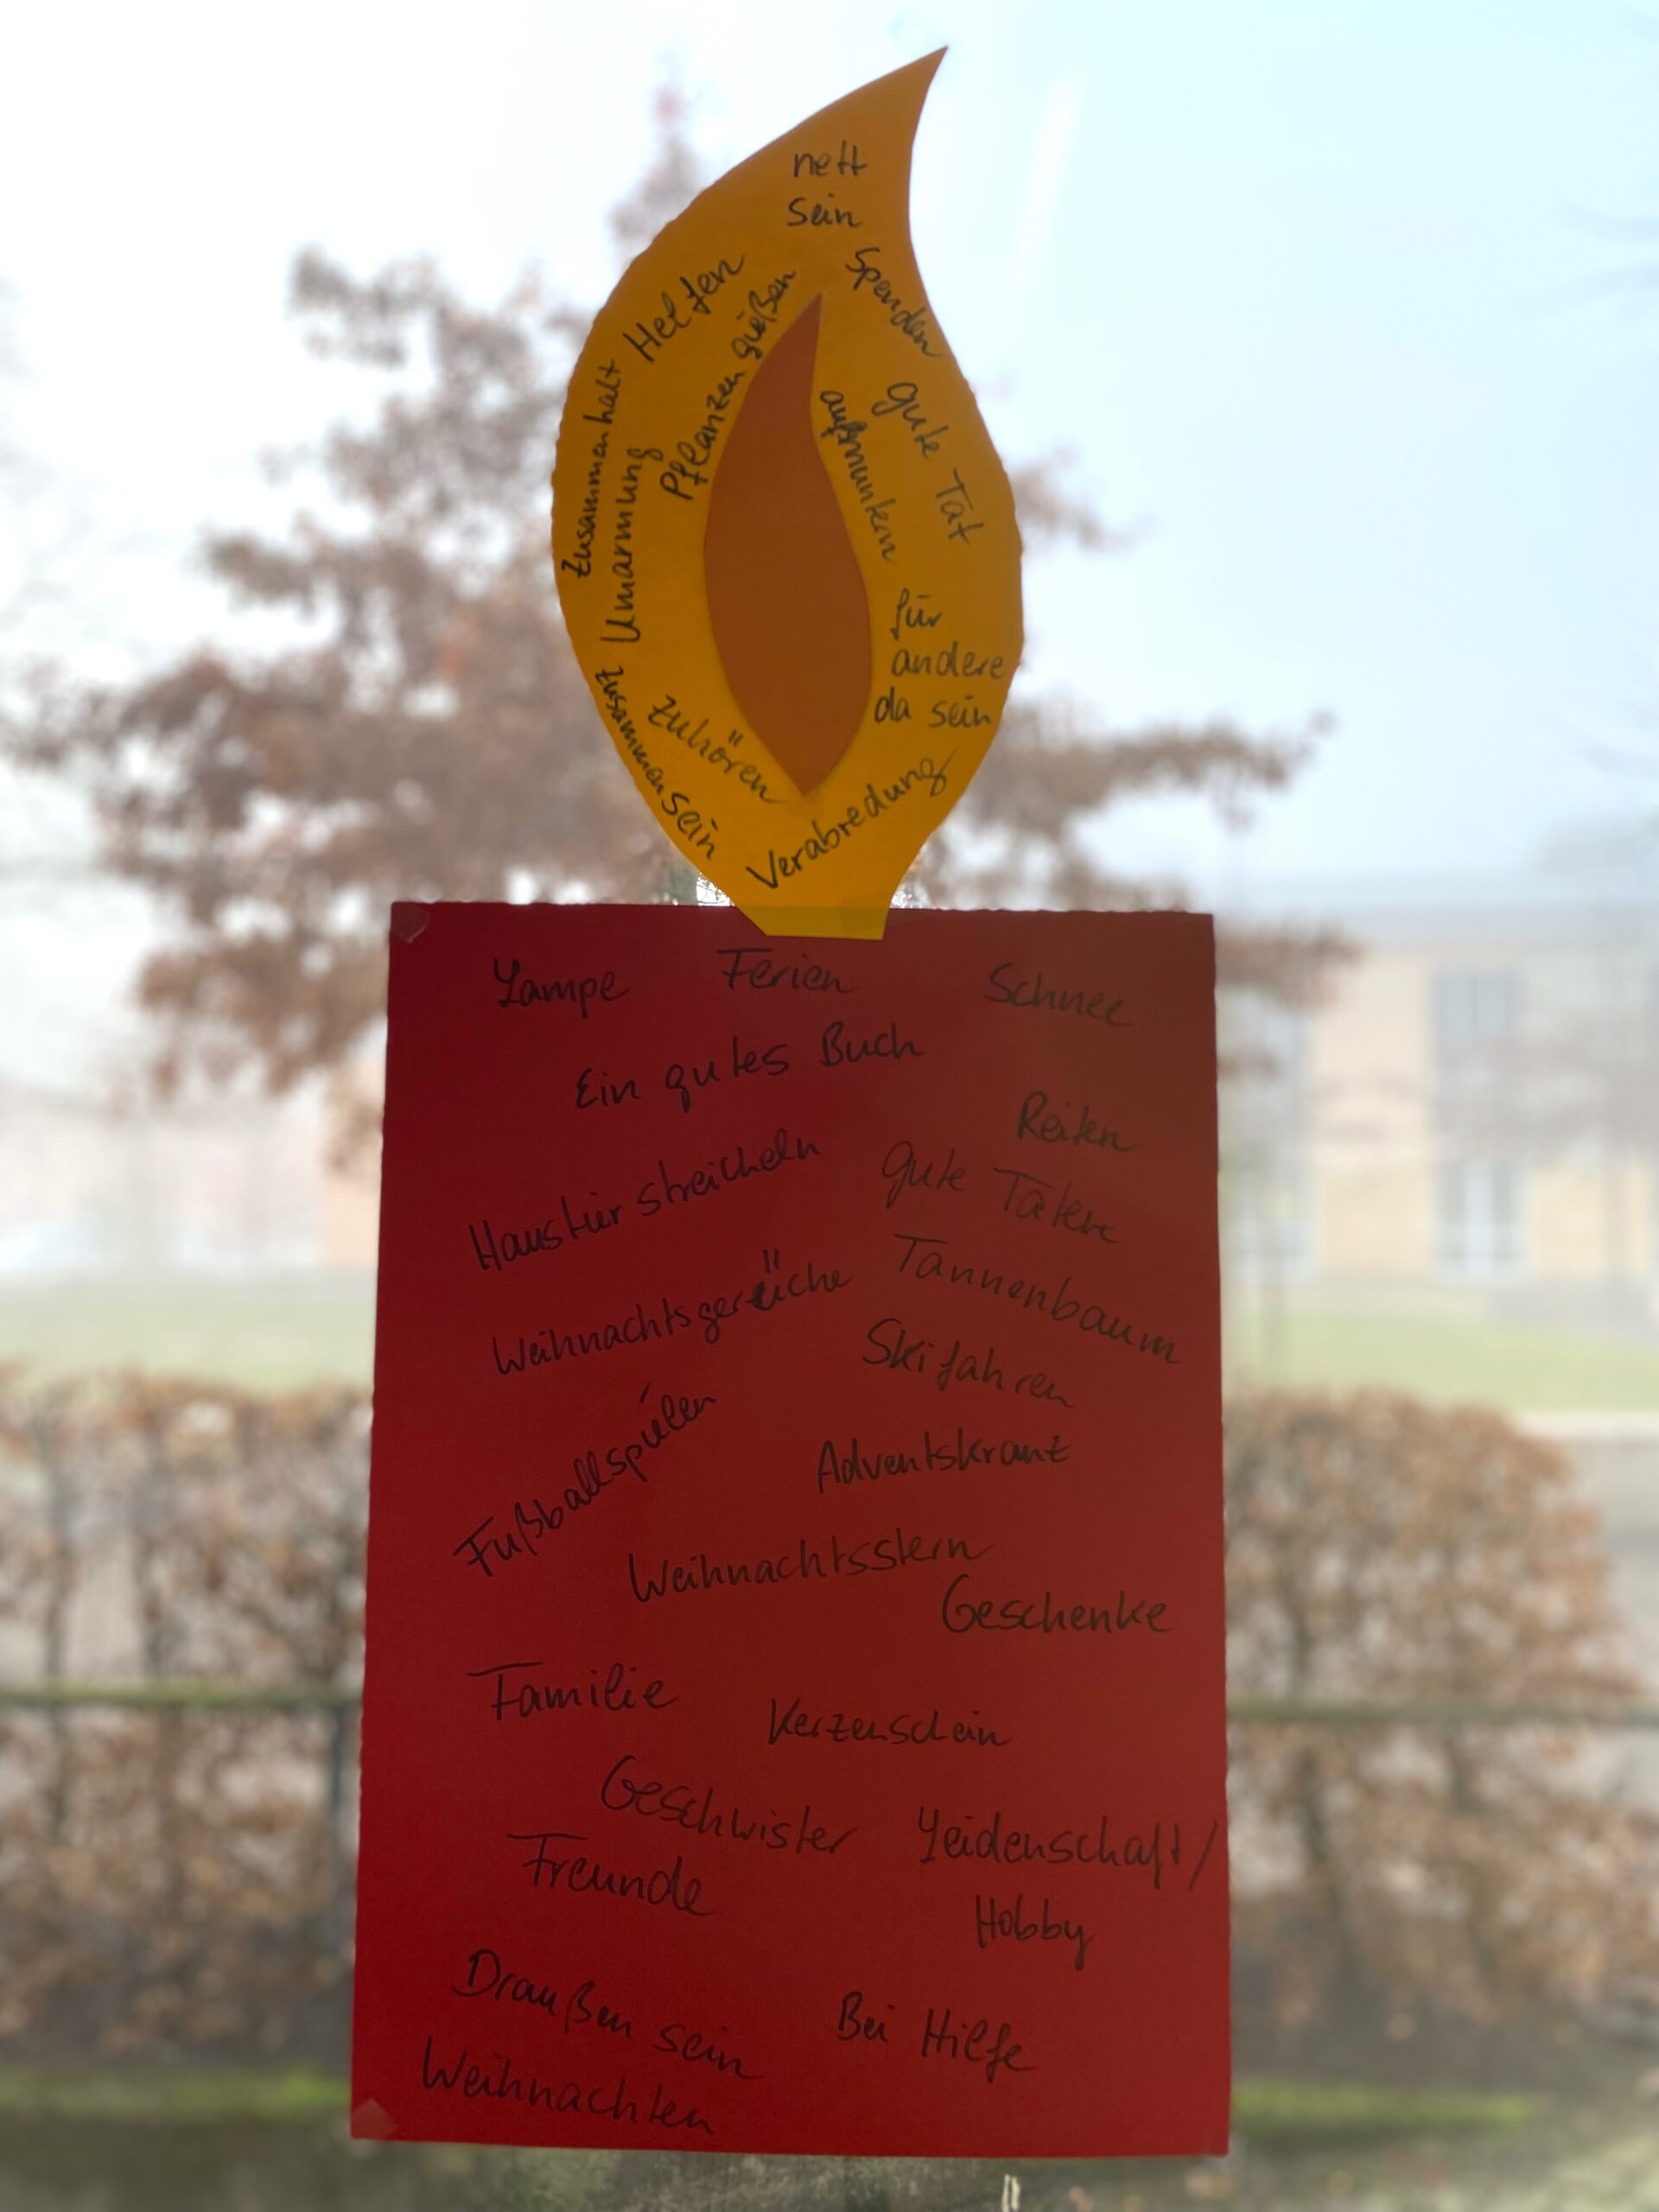 nett
sein
Helfen
Spenden
Pflanzen gießen
Zusammenhalt
Umarmung
gute Tat
aufmuntern
für
andere
da sein
zuhören
zusammensein
Verabredung
Lampe Ferien Schnee
Ein gutes Buch
Reiten
Haustür streicheln
gute Taten
Weihnachtsgerüche
Tannenbaum
Skifahren
Fußballspielen
Adventskranz
Weihnachtsstern
Geschenke
Familie
Kerzenschein
Geschwister
Leidenschaft/
Hobby
Freunde
Draußen sein
Bei Hilfe
Weihnachten